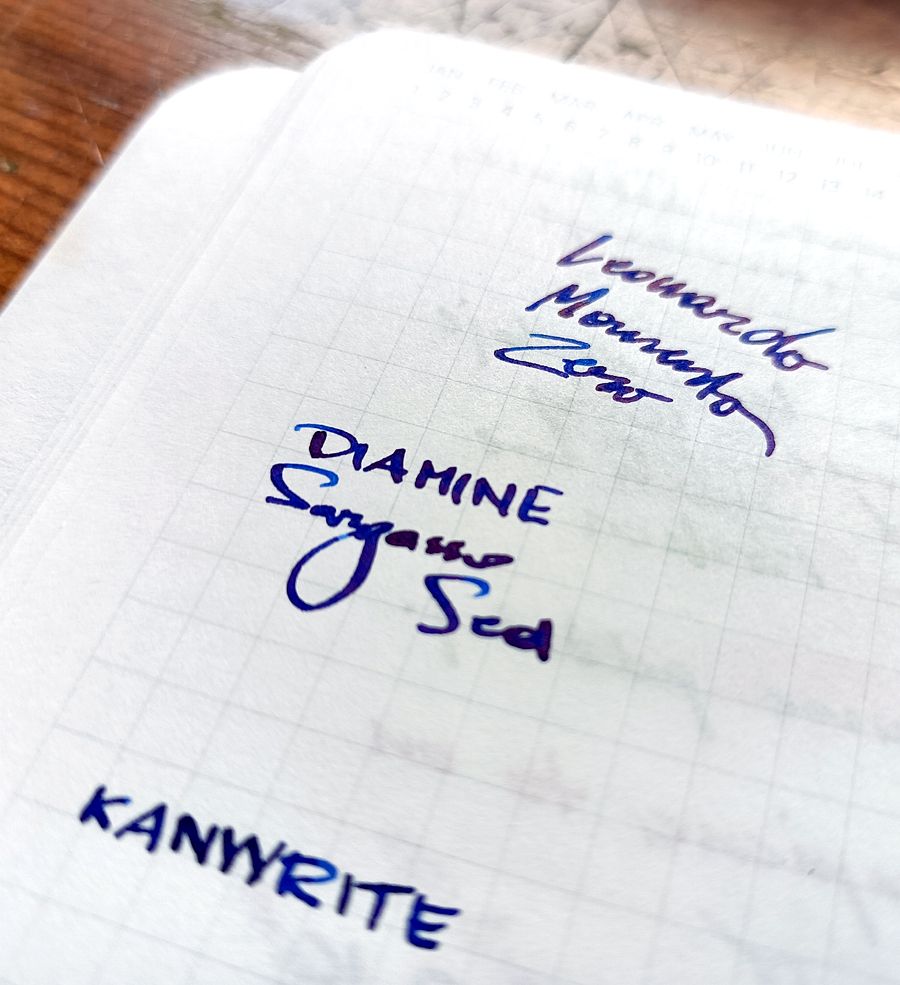 JAN FEB MAR APR MAY JUN JUL
1 2 3 4 5 6 7 8 9 10 11 12 13 14
Leonardo
Momento
Zero
DIAMINE
Sargasso
Sea
KANWRITE